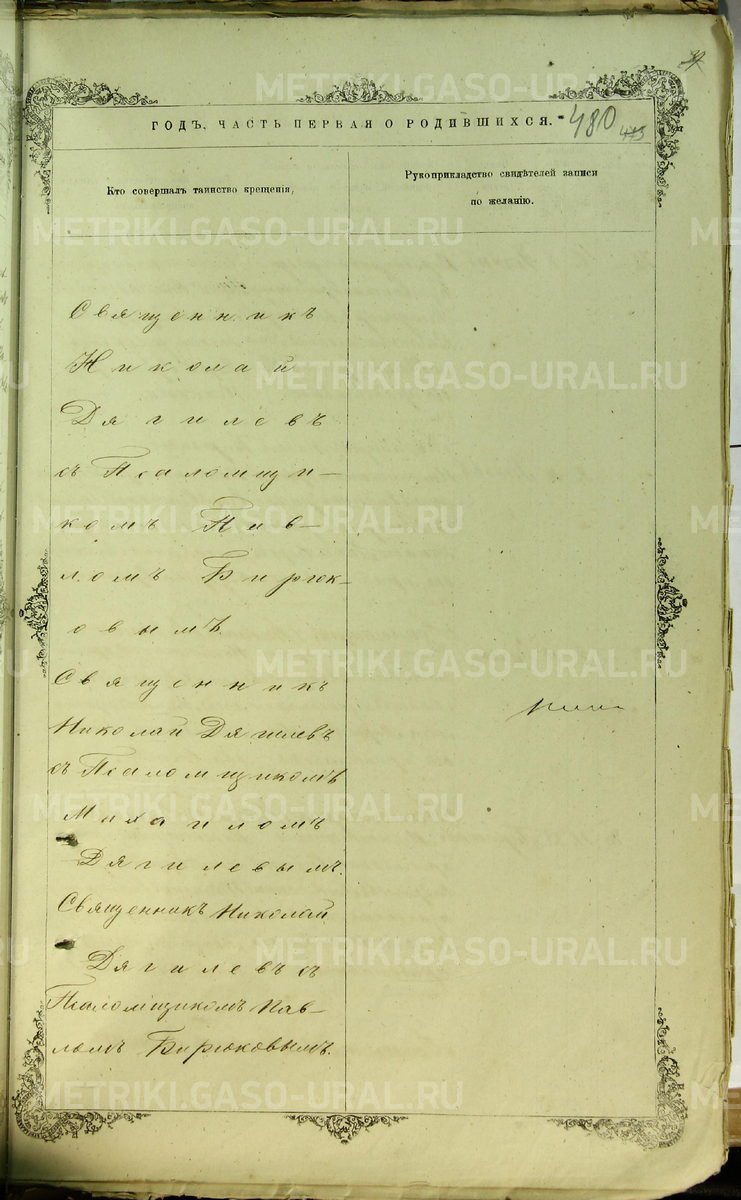 ГОДЪ, ЧАСТЬ ПЕРВАЯ О РОДИВШИХСЯ.
480
Кто совершалъ таинство крещенія,
Рукоприкладство свидѣтелей записи
по желанію.
Священникъ
Николай
Дягилевъ
съ Псаломщи—
комъ Пав—
ломъ Бирюк—
овымъ.
Священникъ
Николай Дягилевъ
съ Псаломщикомъ
Михаиломъ
Дягилевымъ.
Священникъ Николай
Дягилевъ съ
Псаломщикомъ Пав—
ломъ Бирюковымъ.
METRIKI.GASO-URAL.RU